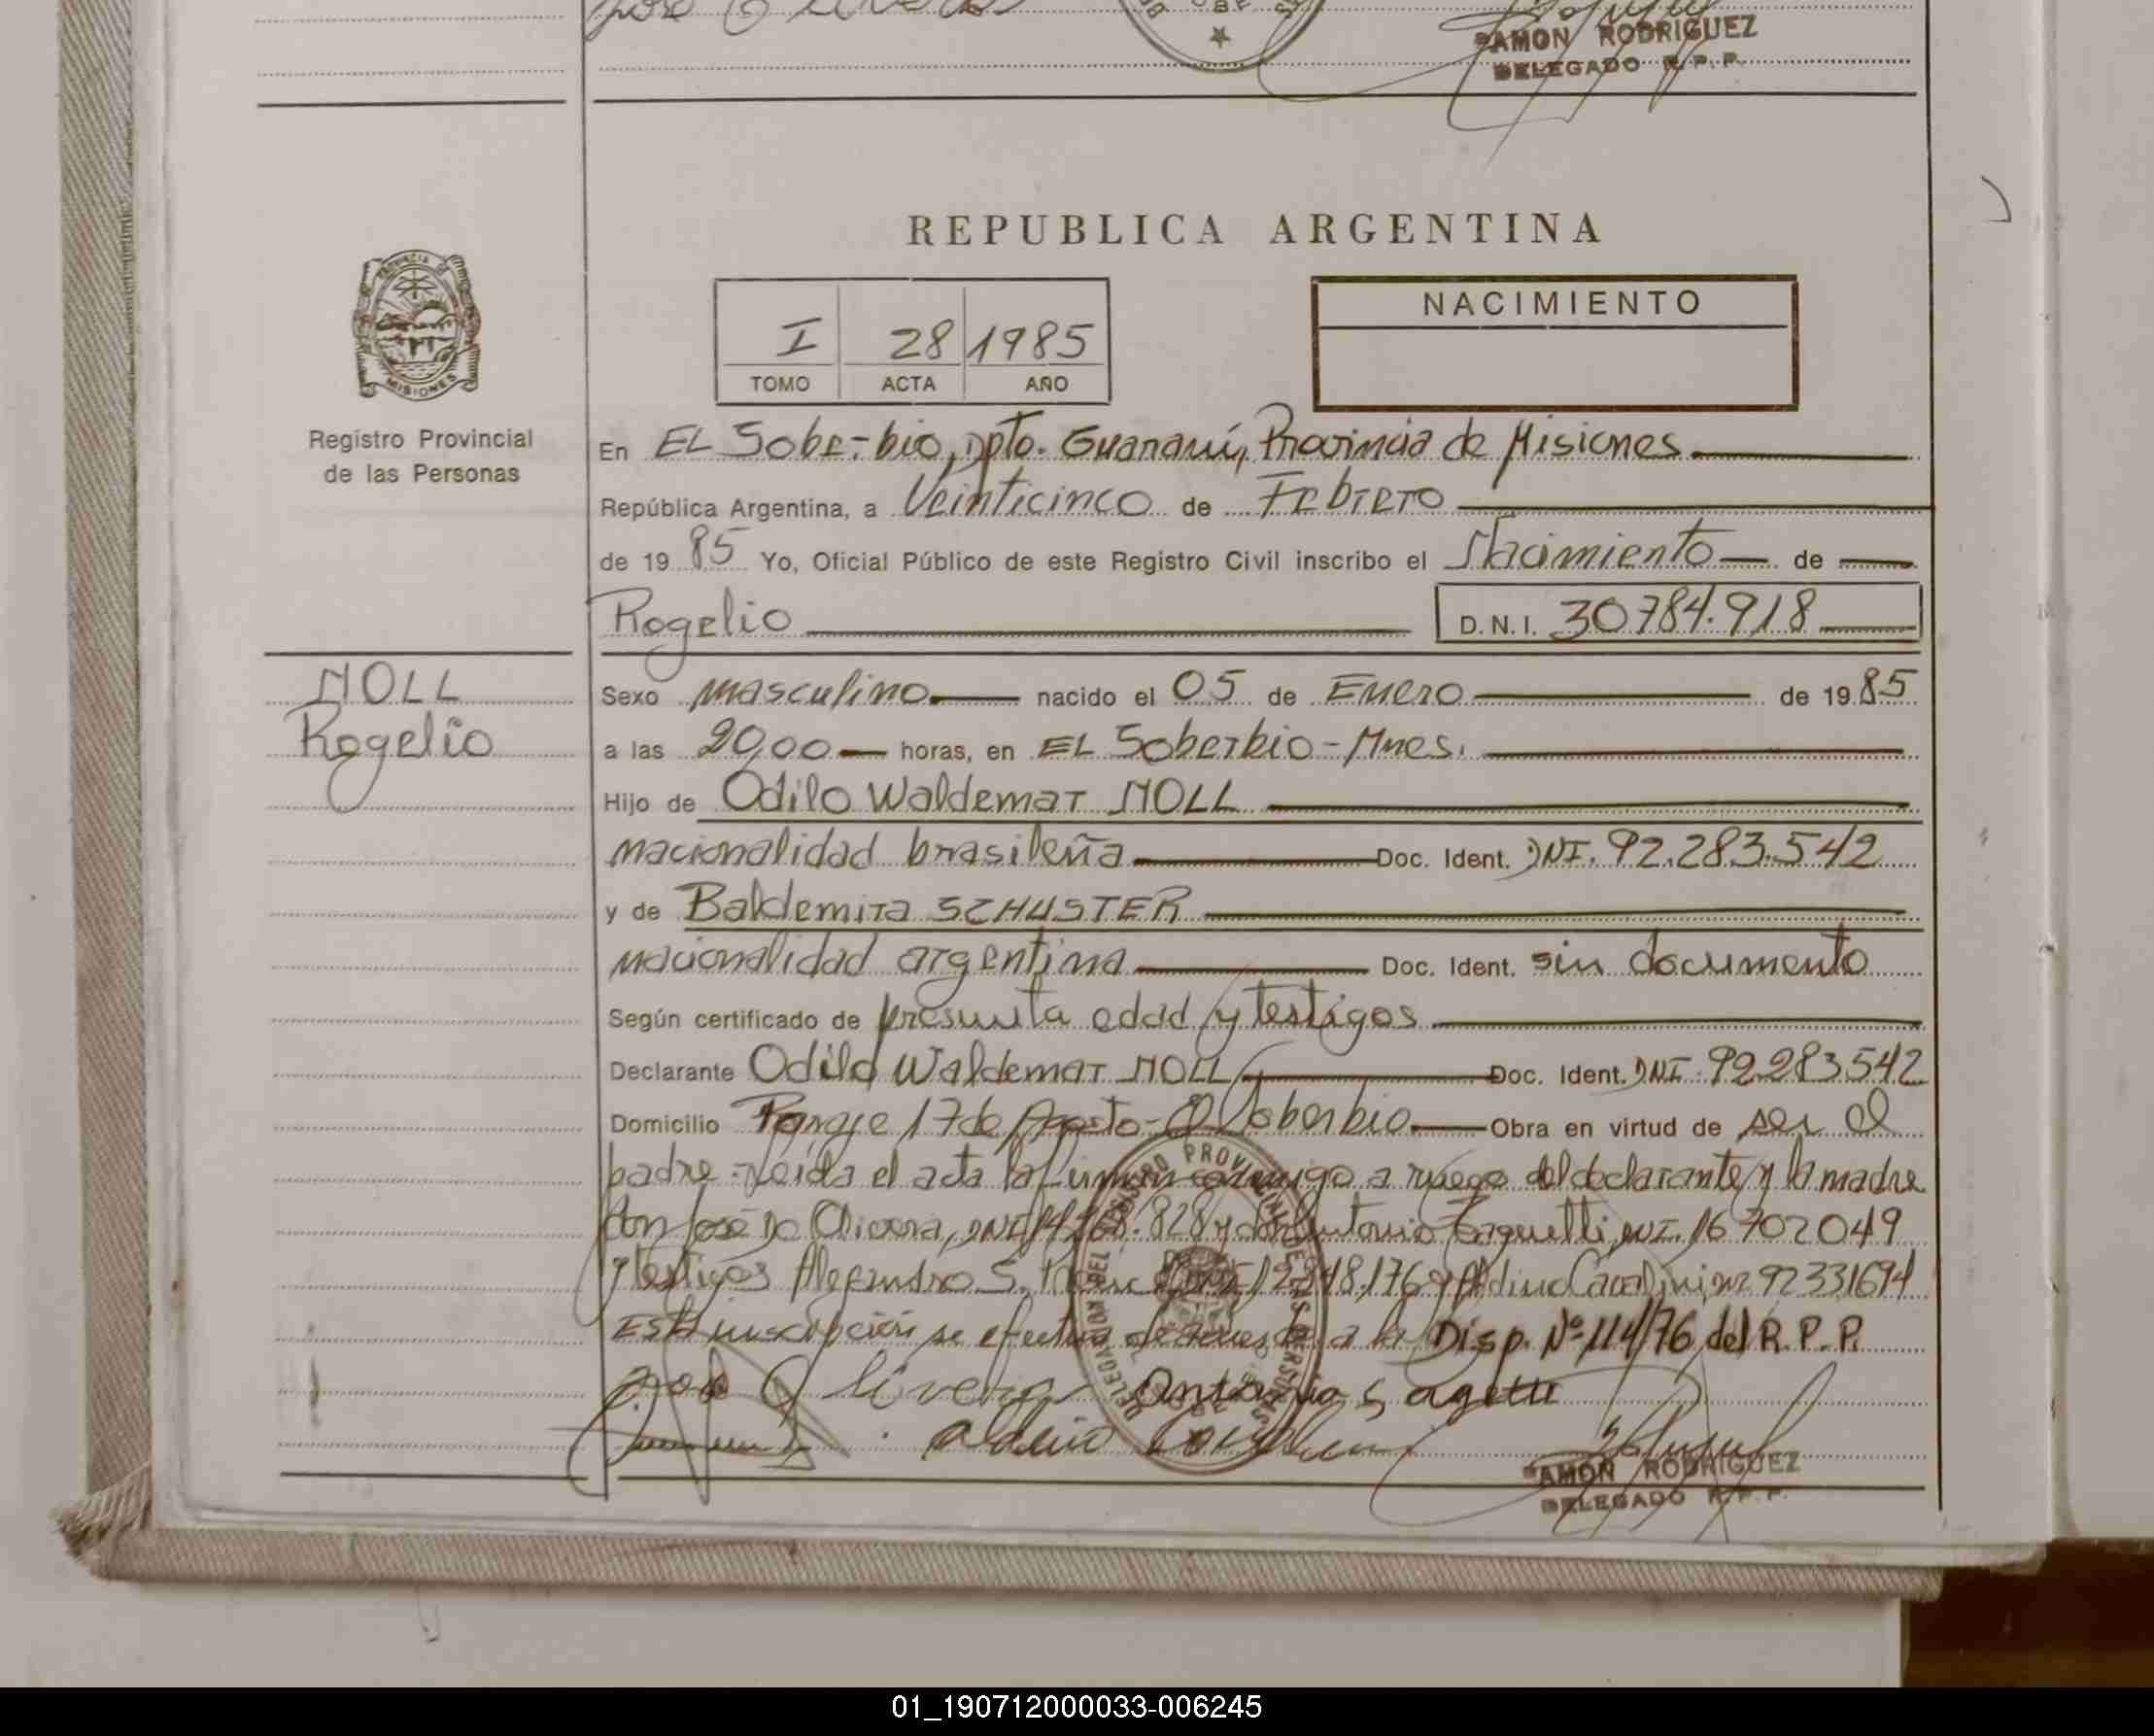 RAMON RODRIGUEZ
DELEGADO R.P.P.
REPUBLICA ARGENTINA
I 28 1985
TOMO ACTA AÑO
NACIMIENTO
PROVINCIA
MISIONES
Registro Provincial
de las Personas
En EL Soberbio, Dpto. Guaraní, Provincia de Misiones
República Argentina, a Veinticinco de Febrero
de 19 85 Yo, Oficial Público de este Registro Civil inscribo el Nacimiento de
Rogelio D.N.I. 30784.918
NOLL
Rogelio
Sexo masculino nacido el 05 de Enero de 19 85
a las 20,00 horas, en EL Soberbio-Mnes.
Hijo de Odilo Waldemar NOLL
nacionalidad brasileña Doc. Ident. DNI. 92.283.542
y de Baldemira SCHUSTER
nacionalidad argentina Doc. Ident. sin documento
Según certificado de presunta edad y testigos
Declarante Odilo Waldemar NOLL Doc. Ident. DNI. 92.283542
Domicilio Paraje 17 de Agosto-El Soberbio Obra en virtud de ser el
padre-Leída el acta la firman conmigo a ruego del declarante y la madre
don José De Olivera, DNI y don Antonio DNI. 16702049
y testigos Alejandro S. 92331694
Esta inscripción se efectúa de acuerdo a la Disp. Nº 114/76 del R.P.P.
Antonio
RAMON RODRIGUEZ
DELEGADO R.P.P.
01_190712000033-006245